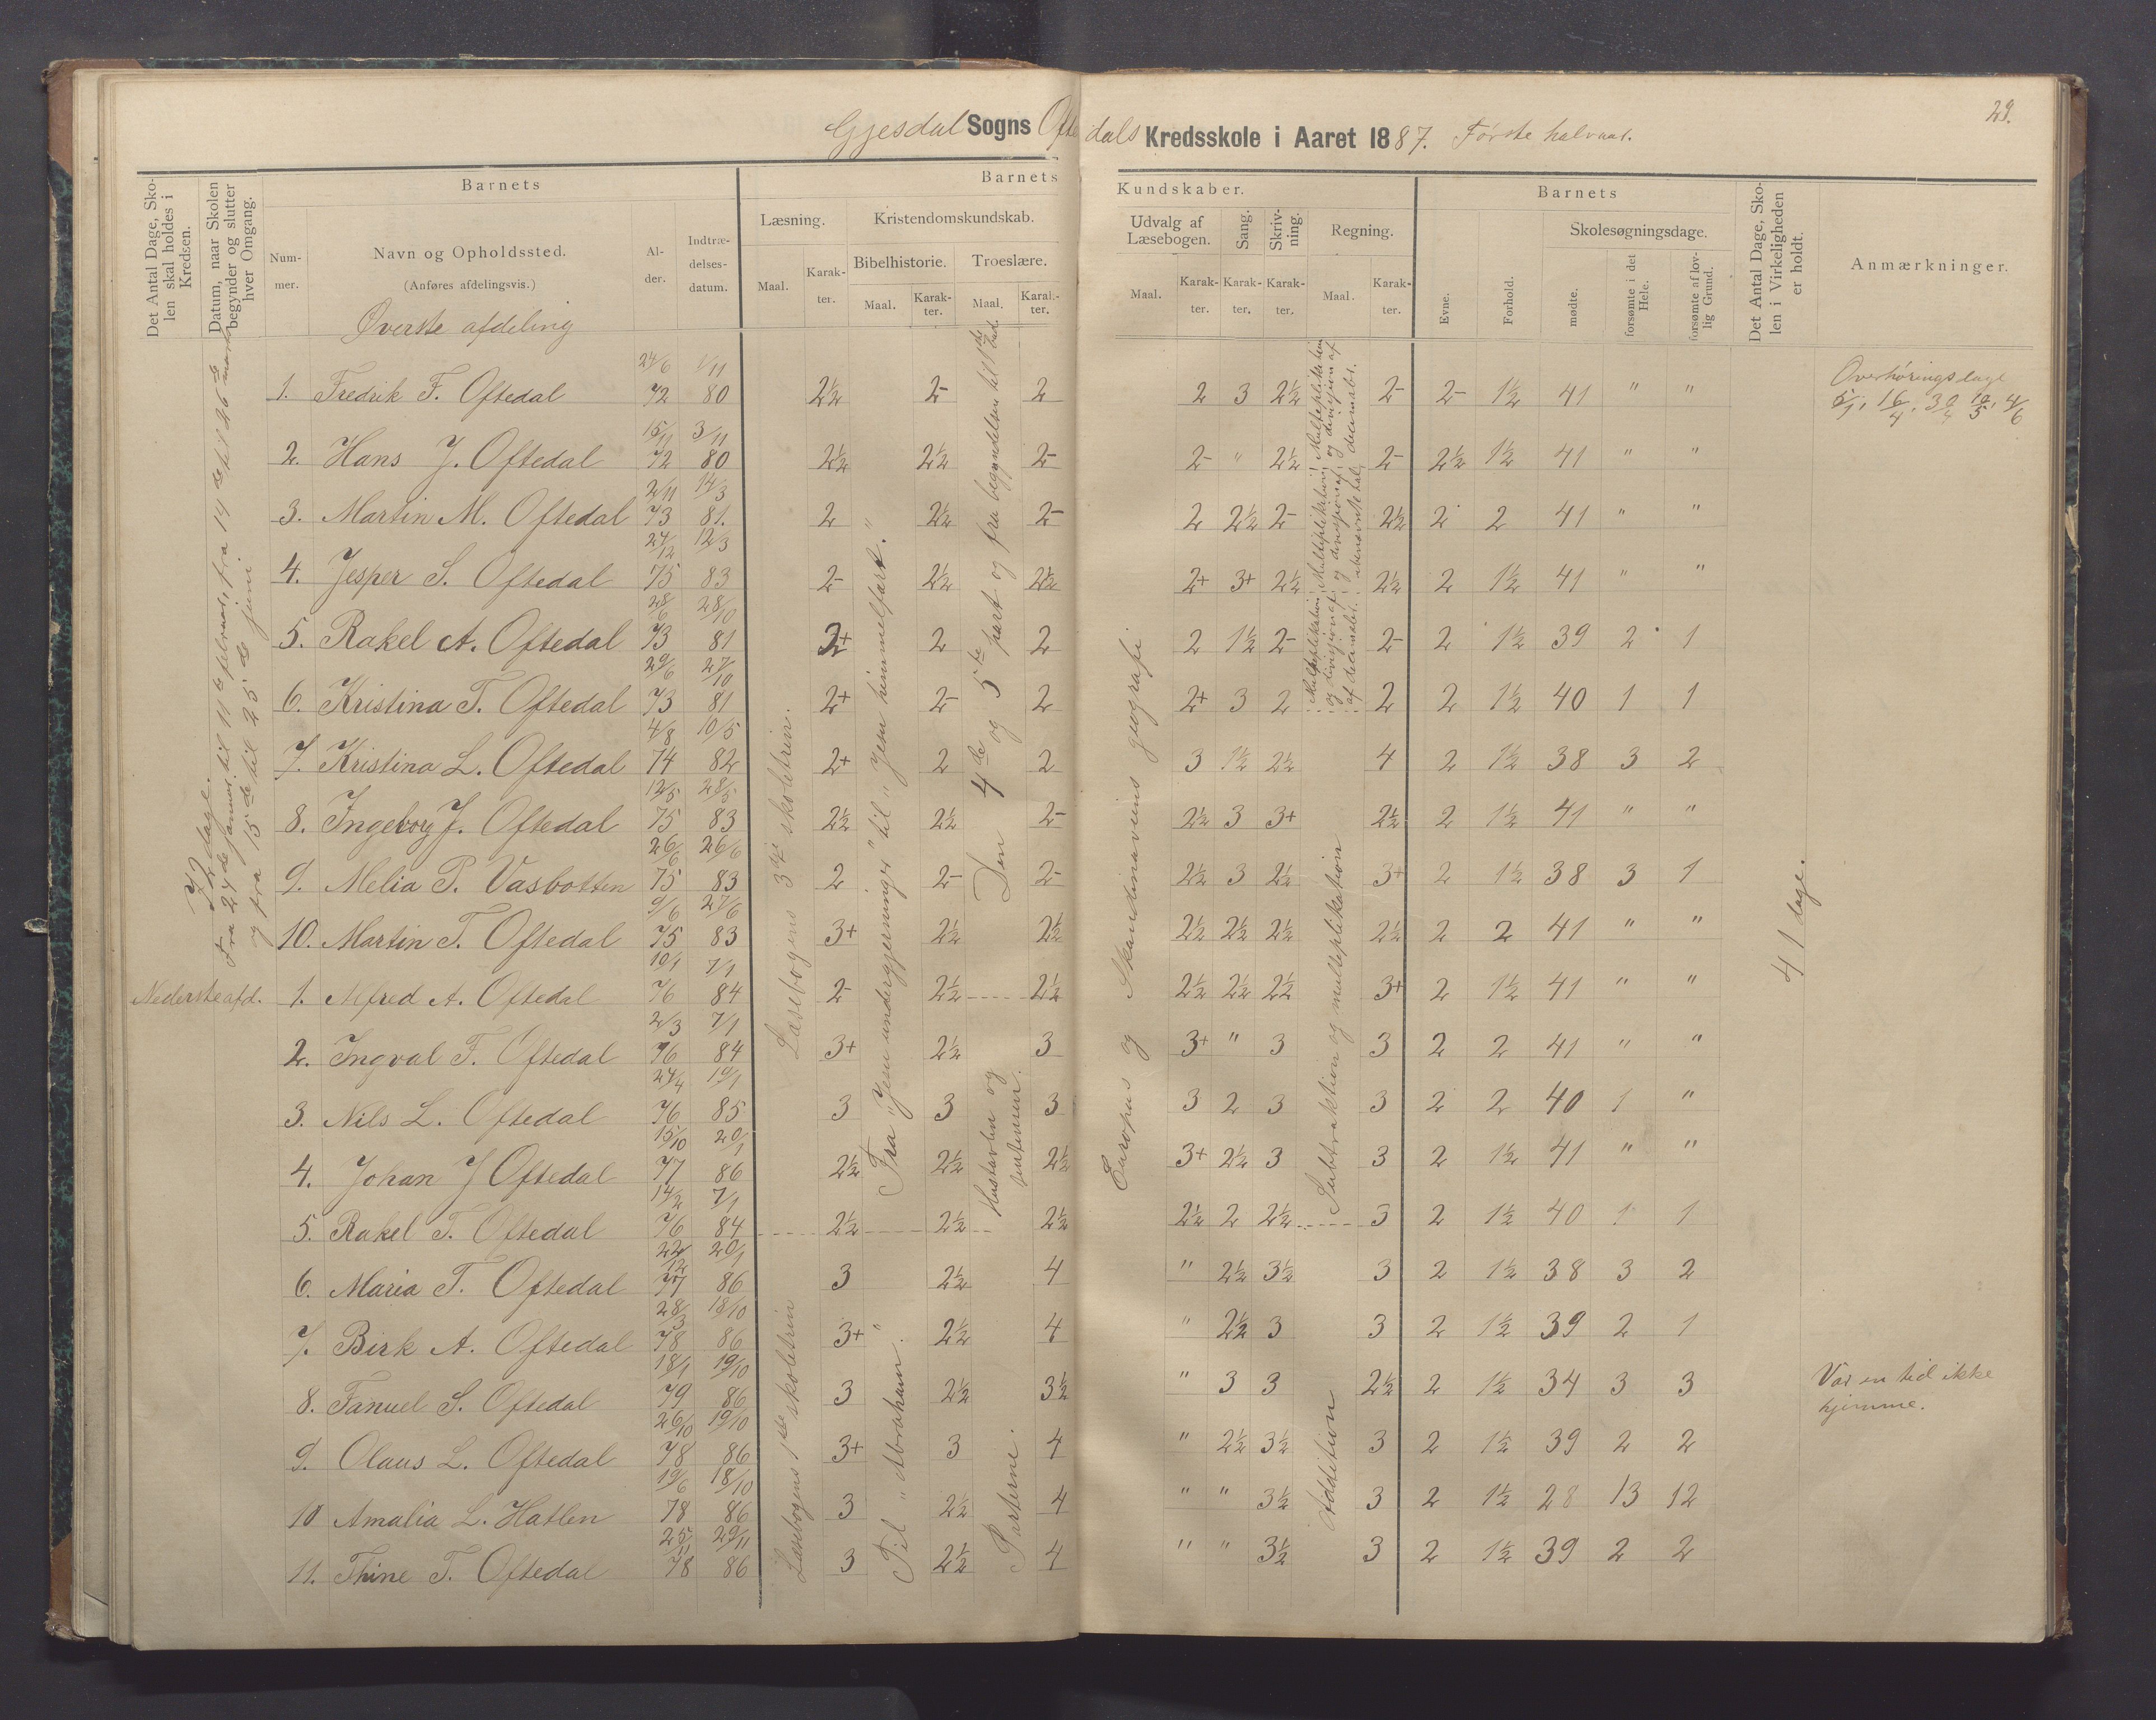 29.
Gjesdal Sogns Oftedals Kredsskole i Aaret 1887. Første halvaar.
Det Antal Dage, Skolen skal holdes i Kredsen.
Datum, naar Skolen begynder og slutter hver Omgang.
Barnets
Nummer.
Navn og Opholdssted.
(Anføres afdelingsvis.)
Alder.
Indtrædelsesdatum.
Barnets Kundskaber.
Læsning.
Maal. Karakter.
Kristendomskundskab.
Bibelhistorie.
Maal. Karakter.
Troeslære.
Maal. Karakter.
Udvalg af Læsebogen.
Maal. Karakter.
Sang.
Karakter.
Skrivning.
Karakter.
Regning.
Maal. Karakter.
Barnets
Evne.
Forhold.
Skolesøgningsdage.
mødte.
forsømte i det Hele.
forsømte af lovlig Grund.
Det Antal Dage, Skolen i Virkeligheden er holdt.
Anmærkninger.
Øverste afdeling
1. Fredrik F. Oftedal 24/6 72 1/11 80 2½ 2- 2 2 3 2½ 2- 2- 1½ 41 " "
2. Hans J. Oftedal 15/11 72 3/11 80 2½ 2½ 2- 2- " 2½ 2- 2½ 1½ 41 " "
3. Martin M. Oftedal 2/11 73 14/3 81. 2 2½ 2- 2 2½ 2- 2½ 2 2 41 " "
4. Jesper S. Oftedal 24/12 75 12/3 83 2- 2½ 2½ 2+ 3+ 2½ 2½ 2 1½ 41 " "
5. Rakel A. Oftedal 28/6 73 28/10 81 2+ 2 2 2 1½ 2- 2- 2 1½ 39 2 1
6. Kristina T. Oftedal 29/6 73 27/10 81 2+ 2- 2 2+ 3 2 2 2 1½ 40 1 1
7. Kristina L. Oftedal 4/8 74 10/5 82 2+ 2 2 3 1½ 2½ 4 2 1½ 38 3 2
8. Ingeborg J. Oftedal 12/5 75 28/5 83 2½ 2½ 2- 2½ 3 3+ 2½ 2 1½ 41 " "
9. Melia P. Vasbotten 26/6 75 26/6 83 2 2- 2- 2½ 3 2½ 3+ 2 1½ 38 3 1
10. Martin T. Oftedal 9/6 75 27/6 83 3+ 2½ 2½ 2½ 2½ 2½ 2½ 2 2 41 " "
Nederste afd.
1. Alfred A. Oftedal 10/1 76 7/1 84 2- 2½ 2½ 2½ 2½ 2½ 3+ 2 1½ 41 " "
2. Ingval F. Oftedal 2/3 76 7/1 84 3+ 2½ 3 3+ " 3 3 2 2 41 " "
3. Nils L. Oftedal 24/4 76 19/1 85 3 3 3 3 2 3 3 2 2 40 1 "
4. Johan J Oftedal 15/10 77 20/1 86 2½ 2½ 2½ 3+ 2½ 3 3 2 1½ 41 " "
5. Rakel T. Oftedal 14/2 76 7/1 84 2½ 2½ 2½ 2½ 2 2½ 3 2 1½ 40 1 1
6. Maria T. Oftedal 22/12 77 20/1 86 3 2½ 4 " 2½ 3½ 3 2 1½ 38 3 2
7. Birk A. Oftedal 28/3 78 18/10 86 3+ 2½ 4 " 2½ 3 3 2 1½ 39 2 1
8. Fanuel S. Oftedal 18/1 79 19/10 86 3 2½ 3½ " 3 3 2½ 2 1½ 34 3 3
9. Olaus L. Oftedal 26/10 78 19/10 86 3+ 3 4 " 2½ 3½ 3 2 1½ 39 2 2
10 Amalia L. Hatlen 19/6 78 18/10 86 3 2½ 4 " " 3½ 3 2 1½ 28 13 12
11. Thine T. Oftedal 25/11 78 29/11 86 3 2½ 4 " " 3½ 3 2 1½ 39 2 2
Fra 24de januar til 11te februar, fra 14de til 26de marts
og fra 15de til 25de juni
Læsebogens 3die skoletrin.
Læsebogens 1ste skoletrin
Fra "Jesu undergjerninger" til "Jesu himmelfart."
Til "Abraham".
Den 4de og 5te part og fra begyndelsen til 1ste bud.
Hustavlen og
Parterne.
Europas og Skandinaviens geografi
Subtraktion og multiplikation
Addition
41 dage.
Overhøringsdage
16/4, 30/4, 10/5, 4/6
Var en tid ikke
hjemme.